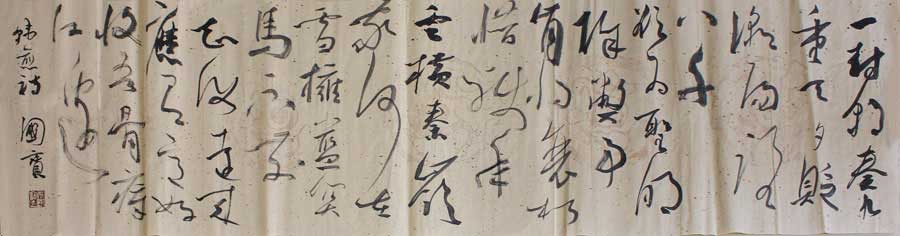 一封朝奏九
重天夕貶
潮陽路
八千
欲為聖明
除弊事
肯將衰朽
惜殘年
雲橫秦嶺
家何在
雪擁藍関
馬不前
知汝遠来
應有意好
收吾骨瘴
江邊
韓愈詩 國賓